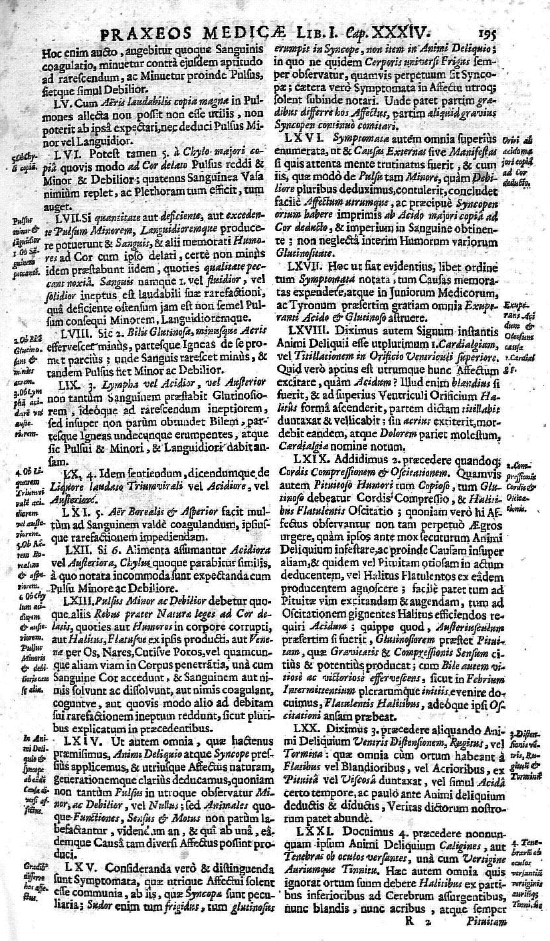 PRAXEOS MEDICÆ LIB. I. Cap. XXXIV. 195
Hoc enim aucto, augebitur quoque Sanguinis
coagulatio, minuetur contrà ejusdem aptitudo
ad rarescendum, ac Minuetur proinde Pulsus,
fietque simul Debilior.
LV. Cum Aëris laudabilis copia magna in Pul-
mones allecta non possit non esse utilis, non
poterit ab ipsâ expectari, nec deduci Pulsus Mi-
nor vel Languidior.
LVI. Potest tamen 5. à Chylo majori co-
piâ quovis modo ad Cor delato Pulsus reddi &
Minor & Debilior; quatenus Sanguinea Vasa
nimiùm replet, ac Plethoram tum efficit, tum
auget.
LVII. Si quantitate aut deficiente, aut exceden-
te Pulsum Minorem, Languidioremque produce-
re potuerunt & Sanguis, & alii memorati Humo-
res ad Cor cum ipso delati, certè non minùs
idem præstabunt iidem, quoties qualitate pec-
cant noxiâ. Sanguis namque 1. vel fluidior, vel
solidior ineptus est laudabili suæ rarefactioni,
quâ deficiente ostensum jam est non semel Pul-
sum consequi Minorem, Languidioremque.
LVIII. Sic 2. Bilis Glutinosa, minusque Acris
effervescet minùs, partesque Igneas de se pro-
met parciùs; unde Sanguis rarescet minùs, &
tandem Pulsus fiet Minor ac Debilior.
LIX. 3. Lympha vel Acidior, vel Austerior
non tantùm Sanguinem præstabit Glutinosio-
rem, ideóque ad rarescendum ineptiorem,
sed insuper non parùm obtundet Bilem, par-
tesque Igneas undecunque erumpentes, atque
sic Pulsui & Minori, & Languidiori dabit an-
sam.
LX. 4. Idem sentiendum, dicendumque de
Liquore laudato Triumvirali vel Acidiore, vel
Austeriore.
LXI. 5. Aër Borealis & Asperior facit mul-
tùm ad Sanguinem valdè coagulandum, ipsius-
que rarefactionem impediendam.
LXII. Si 6. Alimenta assumantur Acidiora
vel Austeriora, Chylus quoque parabitur similis,
à quo notata incommoda sunt expectanda cum
Pulsu Minore ac Debiliore.
LXIII. Pulsus Minor ac Debilior debetur quo-
que aliis Rebus præter Natura leges ad Cor de-
latis, quoties aut Humores in corpore corrupti,
aut Halitus, Flatusve ex ipsis producti, aut Vene-
na per Os, Nares, Cutisve Poros, vel quamcun-
que aliam viam in Corpus penetrâtia, unà cum
Sanguine Cor accedunt, & Sanguinem aut ni-
mis solvunt ac dissolvunt, aut nimis coagulant,
coguntve, aut quovis modo alio ad debitam
sui rarefactionem ineptum reddunt, sicut pluri-
bus explicatum in præcedentibus.
LXIV. Ut autem omnia, quæ hactenus
præmisimus, Animi Deliquio atque Syncope pres-
siùs applicemus, & utriusque Affectûs naturam,
generationemque clariùs deducamus, quoniam
non tantùm Pulsus in utroque observatur Mi-
nor, ac Debilior, vel Nullus; sed Animales quo-
que Functiones, Sensus & Motus non parùm la-
befactantur, videndum an, & quî ab unâ, eâ-
demque Causâ tam diversi Affectus possint pro-
duci.
LXV. Consideranda verò & distinguenda
sunt Symptomata, quæ utrique Affectui solent
esse communia, ab iis, quæ Syncopæ sunt pecu-
liaria; Sudor enim tum frigidus, tum glutinosus
5. Chyli copiâ.
2. Ob Bilis Glutinosæ & minùs acrem.
Gradus differre hos affectus.
erumpit in Syncope, non item in Animi Deliquio;
in quo ne quidem Corporis universi Frigus sem-
per observatur, quamvis perpetuum sit Synco-
pæ; cætera verò Symptomata in Affectu utroq;
solent subinde notari. Unde patet partim gra-
dibus differre hos Affectus, partim aliquid gravius
Syncopen continuò comitari.
LXVI. Symptomata autem omnia superiùs
enumerata, ut & Causas Externas sive Manifestas
si quis attenta mente trutinans fuerit, & cum
iis, quæ modò de Pulsu tam Minore, quàm Debi-
liore pluribus deduximus, contulerit, concludet
facilè Affectum utrumque, ac præcipuè Syncopen
ortum habere imprimis ab Acido majori copiâ ad
Cor deducto, & imperium in Sanguine obtinen-
te; non neglectâ interim Humorum variorum
Glutinositate.
LXVII. Hoc ut fiat evidentius, libet ordine
tum Symptomata notata, tum Causas memora-
tas expendere, atque in Juniorum Medicorum,
ac Tyronum præsertim gratiam omnia Exupe-
rantis Acido & Glutinoso astruere.
LXVIII. Diximus autem Signum instantis
Animi Deliquii esse utplurimùm 1. Cardialgiam,
vel Titillationem in Orificio Ventriculi superiore.
Quid verò aptius est utrumque hunc Affectum
excitare, quàm Acidum? Illud enim blandius si
fuerit, & ad superius Ventriculi Orificium Ha-
litûs formâ ascenderit, partem dictam titillabit
duntaxat & vellicabit; sin acrius extiterit, mor-
debit eandem, atque Dolorem pariet molestum,
Cardialgia nomine notum.
LXIX. Addidimus 2. præcedere quandoq;
Cordis Compressionem & Oscitationem. Quamvis
autem Pituitoso Humori tum Copioso, tum Glu-
tinoso debeatur Cordis Compressio, & Haliti-
bus Flatulentis Oscitatio; quoniam verò hi Af-
fectus observantur non tam perpetuò Ægros
urgere, quàm ipsos ante mox secuturum Animi
Deliquium infestare, ac proinde Causam insuper
aliam, & quidem vel Pituitam otiosam in actum
deducentem, vel Halitus Flatulentos ex eâdem
producentem agnoscere; facilè patet tum ad
Pituitæ vim excitandam & augendam, tum ad
Oscitationem gignentes Halitus efficiendos re-
quiri Acidum: quippe quod, Austeriusculum
præsertim si fuerit, Glutinosorem præstet Pitui-
tam, quæ Gravitatis & Compressionis Sensum ci-
tiùs & potentiùs producat; cum Bile autem vi-
tiosè ac victoriosè effervescens, sicut in Febrium
Intermittentium plerarumque initiis evenire do-
cuimus, Flatulentis Halitibus, adeóque ipsi Os-
citationi ansam præbeat.
LXX. Diximus 3. præcedere aliquando Ani-
mi Deliquium Ventris Distensionem, Rugitus, vel
Tormina: quæ omnia cùm ortum habeant à
Flatibus vel Blandioribus, vel Acrioribus, ex
Pituitâ vel Viscosâ duntaxat, vel simul Acidâ
certo tempore, ac paulò ante Animi deliquium
deductis & diductis, Veritas dictorum nostro-
rum patet abundè.
LXXI. Docuimus 4. præcedere nonnun-
quam ipsum Animi Deliquium Caligines, aut
Tenebras ob oculos versantes, unà cum Vertigine
Auriumque Tinnitu. Hæc autem omnia quis
ignorat ortum suum debere Halitibus ex parti-
bus inferioribus ad Cerebrum assurgentibus,
nunc blandis, nunc acribus, atque semper
R 2 Pituitam
Exuperantis Acidum & Glutinosum causa
1. Cardialgia.
2. Compressionis Cordis & Oscitationis.
3. Distensionis Ventris, Rugitus & Torminum